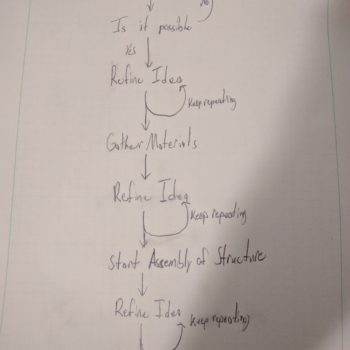 No
Is it possible
Yes
Refine Idea
Keep repeating
Gather Materials
Refine Idea
Keep repeating
Start Assembly of Structure
Refine Idea
Keep repeating